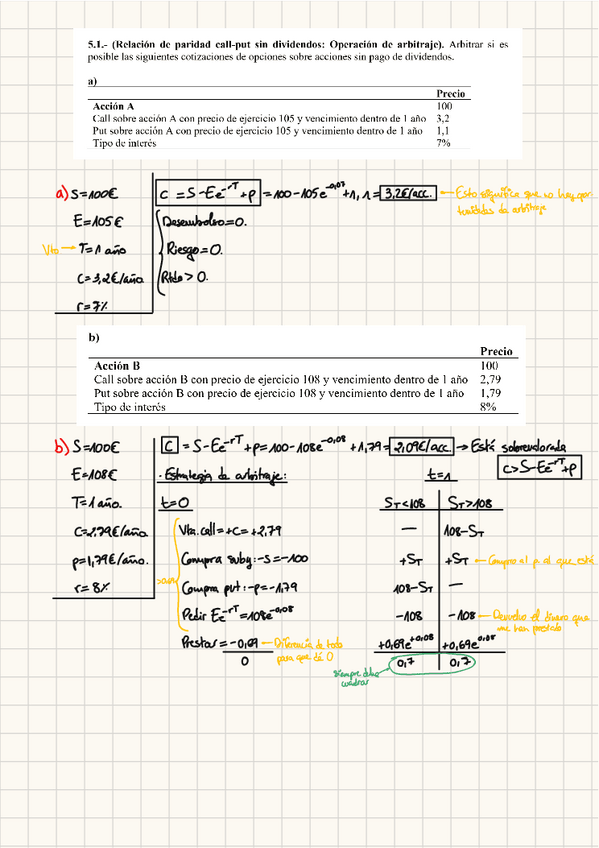 5.1.- (Relación de paridad call-put sin dividendos: Operación de arbitraje). Arbitrar si es
posible las siguientes cotizaciones de opciones sobre acciones sin pago de dividendos.
a)
Precio
Acción A 100
Call sobre acción A con precio de ejercicio 105 y vencimiento dentro de 1 año 3,2
Put sobre acción A con precio de ejercicio 105 y vencimiento dentro de 1 año 1,1
Tipo de interés 7%
a) S=100€ C = S-Ee^-rT + p = 100-105e^-0,07 + 1,1 = 3,2€/acc. Esto significa que no hay opor
tunidades de arbitraje
E=105€ Desembolso=0.
Vto → T=1 año Riesgo=0.
C=3,2€/año Rtdo > 0.
r=7%
b)
Precio
Acción B 100
Call sobre acción B con precio de ejercicio 108 y vencimiento dentro de 1 año 2,79
Put sobre acción B con precio de ejercicio 108 y vencimiento dentro de 1 año 1,79
Tipo de interés 8%
b) S=100€ C = S-Ee^-rT + p = 100-108e^-0,08 + 1,79 = 2,09€/acc. → Está sobrevalorada
C>S-Ee^-rT+p
E=108€ · Estrategia de arbitraje: t=1
T=1 año. t=0 ST<108 ST>108
C=2,79€/año Vta. call=+C=+2,79 — 108-ST
p=1,79€/año. Compra suby:-S=-100 +ST +ST — Compro al p al que está
r=8% Compra put:-p=-1,79 108-ST —
Pedir Ee^-rT=108e^-0,08 -108 -108 — Devuelvo el dinero que
me han prestado
Prestar=-0,69 — Diferencia de todo
para que dé 0 +0,69e^+0,08 +0,69e^0,08
0 0,7 0,7
siempre debe
cuadrar